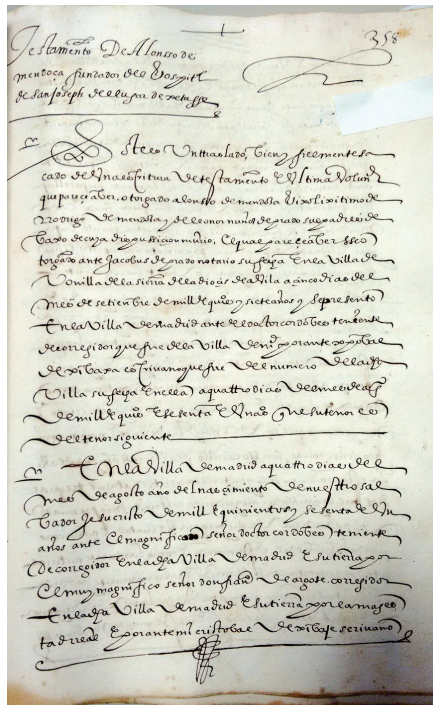 358
Testamento De Alonsso de
mendoça fundador del Hospital
de San Joseph del lugar de xetaffe
Este es Un traslado, bien y fielmente sa
cado de Una escritura de testamento E Ultima Volunt
que pareció aber, otorgado alonso de mendoça hixo lixitimo de
Rodrigo de mendoça y de leonor nuñez de prado sus padres de
baxo de cuya dispussicion murio, El qual parece aber sse o
torgado ante Jacobus de prado notario su fecha En la Villa de
bonilla de la sierra de la dioçs de abila a cinco dias del
mes de setienbre de mill E qui os y siete años y se presento
En la Villa de madrid ante el doctor cordobes teniente
de corregidor que fue de la Villa de md por ante xpobal
de xibaxa escrivano que fue del numero de la dha
Villa su fecha En ella a quattro dias del mes de ag
de mill E qui os E sesenta E Un años que su tenor es
del tenor siguiente
En la Villa de madrid a quattro dias del
mes de agosto año del nascimiento de nuestro sal
bador Jesucristo de mill E quinientos y sesenta E Un
años ante El magnifico señor doctor cordobes teniente
De corregidor En la dha Villa de madrid E su tierra por
El muy magnifico señor don de argote corregidor
En la dha Villa de madrid E su tierra por la mages
tad rreal E por ante mi cristobal de xibaje scrivano